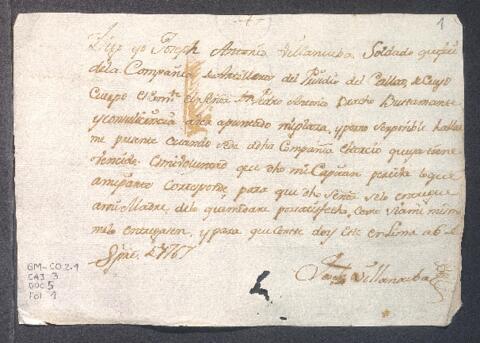 1
Digo yo Joseph Antonio Villanueba Soldado que fui
de la Compañia de Artilleros del Presidio del Callao, de cuyo
Cuerpo es el Señor Dn Pedro Antonio Bustamante
y con su licencia apuntado mi plaza, y para
me presente cuando sea dha Compañia el tercio que ya tiene
vencido. Es mi voluntad que dho mi Capitan perciba lo que
a mi parte corresponde, para que dho Señor selo entregue
a mi Madre, de lo que me dare por satisfecho, como si a mi mismo
me lo entregasen, y para que conste doy este en Lima a 6 de
Spre. de 1767
Villanueba
GM-CO 2.1
CAJ 3
DOC 5
FOL 1